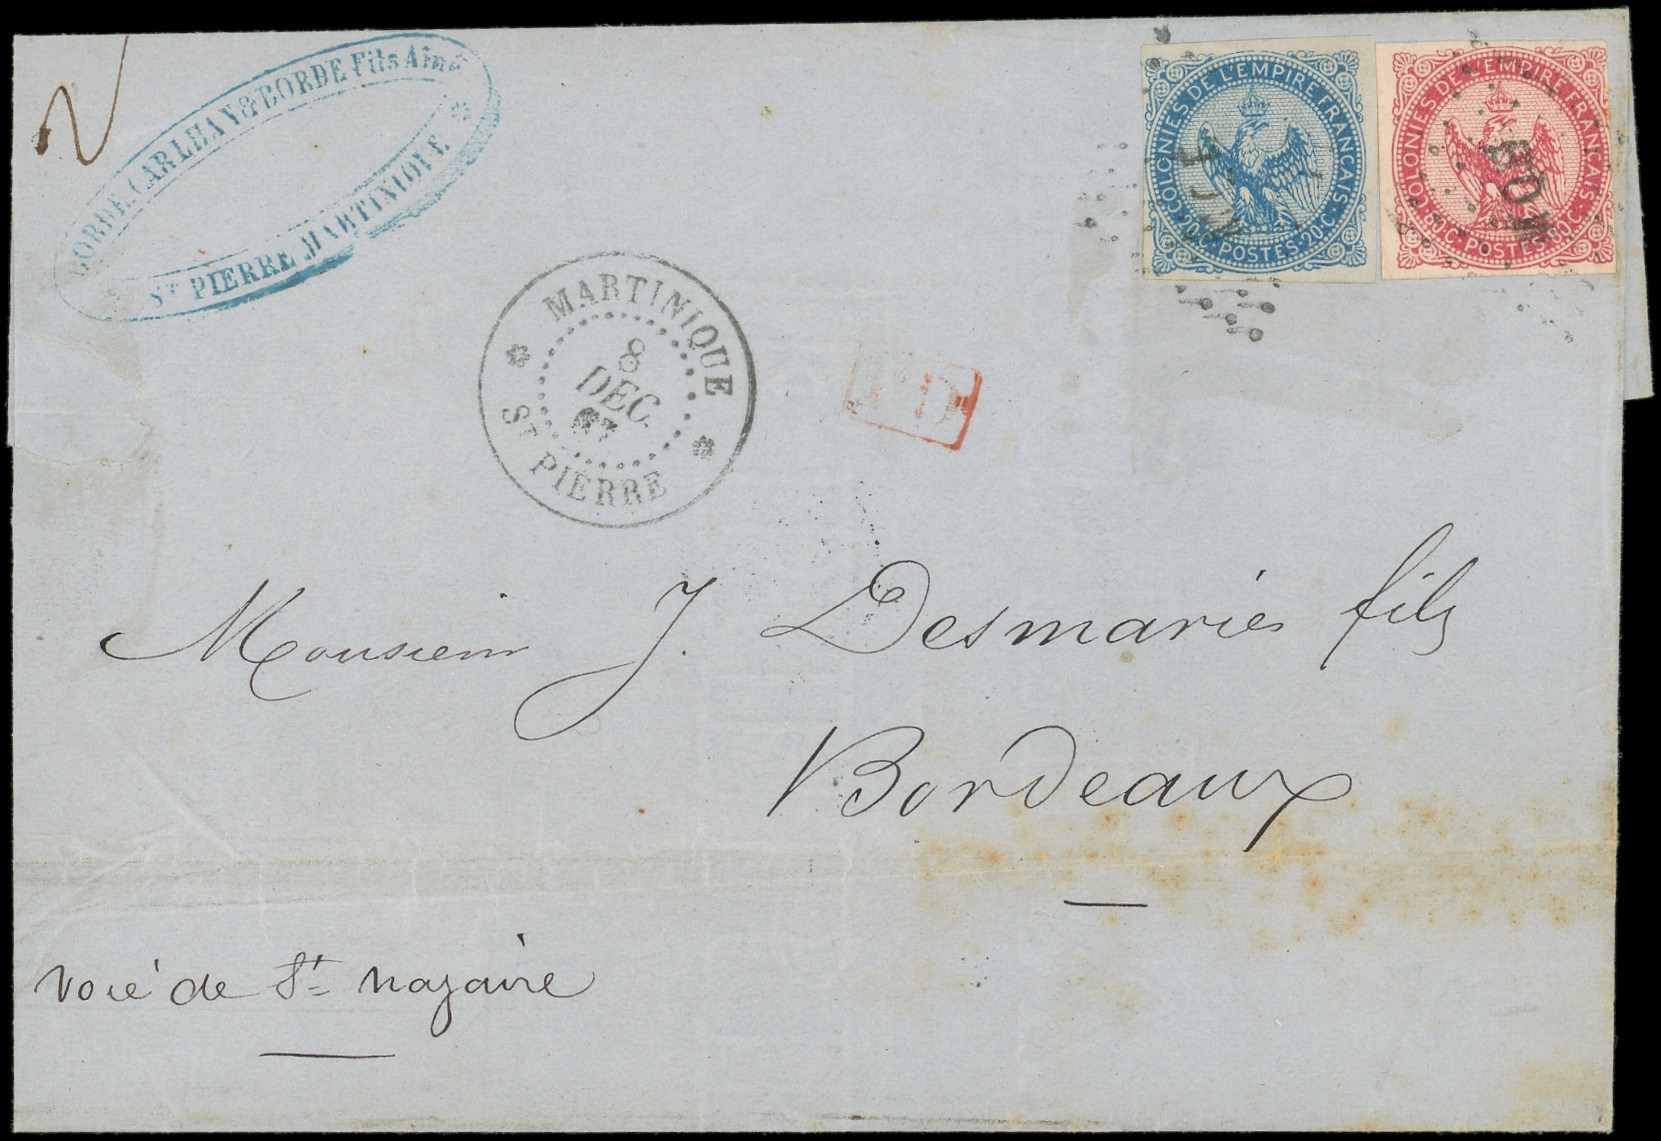 2
BORDE, CARLHAN & BORDE Fils Aîné
ST PIERRE MARTINIQUE
COLONIES DE L'EMPIRE FRANÇAIS
20C. POSTES. 20C.
COLONIES DE L'EMPIRE FRANÇAIS
80C. POSTES. 80C.
MARTINIQUE
8
DEC.
ST PIERRE
PD
Monsieur J. Desmariès fils
Bordeaux
Voie de St Nazaire